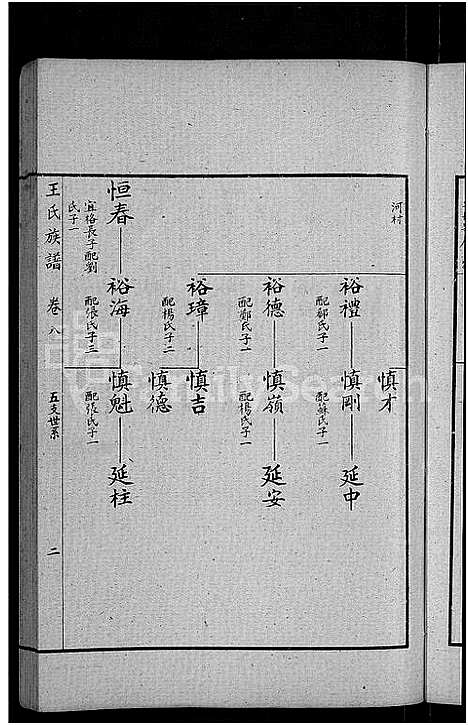 河村
慎才
裕禮
配鄒氏子一
慎剛
配蘇氏子一
延中
裕德
配鄭氏子一
慎嶺
配楊氏子一
延安
裕璋
配楊氏子二
慎吉
慎德
恒春
宜格長子配劉
氏子一
裕海
配張氏子三
慎魁
配張氏子一
延柱
王氏族譜 卷八 五支世系 二
FamilySearch